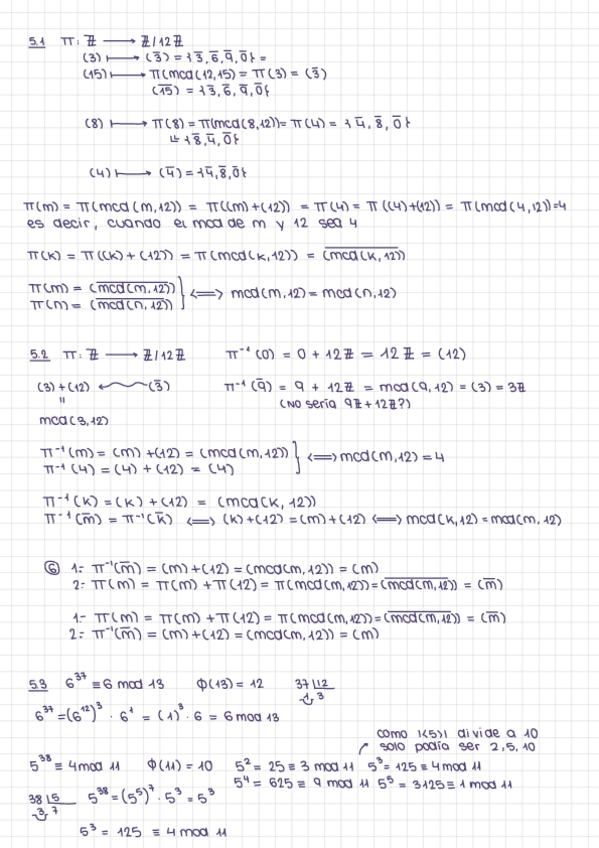 5.1 π: ℤ ⟶ ℤ/12ℤ
(3) ⟼ (3̄) = {3̄, 6̄, 9̄, 0̄} =
(15) ⟼ π(mcd(12,15) = π(3) = (3̄)
(1̄5̄) = {3̄, 6̄, 9̄, 0̄}
(8) ⟼ π(8) = π(mcd(8,12)) = π(4) = {4̄, 8̄, 0̄}
↳ {8̄, 4̄, 0̄}
(4) ⟼ (4̄) = {4̄, 8̄, 0̄}
π(m) = π(mcd(m,12)) = π((m)+(12)) = π(4) = π((4)+(12)) = π(mcd(4,12)) = 4
es decir, cuando el mcd de m y 12 sea 4
π(k) = π((k) + (12)) = π(mcd(k,12)) = (mcd(k,12))
π(m) = (mcd(m,12))
π(n) = (mcd(n,12)) } ⟺ mcd(m,12) = mcd(n,12)
5.2 π: ℤ ⟶ ℤ/12ℤ π⁻¹(0) = 0 + 12ℤ = 12ℤ = (12)
(3)+(12) ⟵ (3̄) π⁻¹(9̄) = 9 + 12ℤ = mcd(9,12) = (3) = 3ℤ
" (No sería 9ℤ + 12ℤ?)
mcd(3,12)
π⁻¹(m) = (m) + (12) = (mcd(m,12))
π⁻¹(4) = (4) + (12) = (4) } ⟺ mcd(m,12) = 4
π⁻¹(k) = (k) + (12) = (mcd(k,12))
π⁻¹(m̄) = π⁻¹(k̄) ⟺ (k)+(12) = (m)+(12) ⟺ mcd(k,12) = mcd(m,12)
⑥ 1:- π⁻¹(m̄) = (m) + (12) = (mcd(m,12)) = (m)
2:- π(m) = π(m) + π(12) = π(mcd(m,12)) = (mcd(m,12)) = (m̄)
1:- π(m) = π(m) + π(12) = π(mcd(m,12)) = (mcd(m,12)) = (m̄)
2:- π⁻¹(m̄) = (m) + (12) = (mcd(m,12)) = (m)
5.3 6³⁷ ≡ 6 mod 13 ϕ(13) = 12 37 |12
1 3
6³⁷ = (6¹²)³ · 6¹ = (1)³ · 6 = 6 mod 13
como |<5>| divide a 10
solo podía ser 2, 5, 10
5³⁸ ≡ 4 mod 11 ϕ(11) = 10 5² = 25 ≡ 3 mod 11 5³ = 125 ≡ 4 mod 11
5⁴ = 625 ≡ 9 mod 11 5⁵ = 3125 ≡ 1 mod 11
38 |5 5³⁸ = (5⁵)⁷ · 5³ = 5³
3 7
5³ = 125 ≡ 4 mod 11